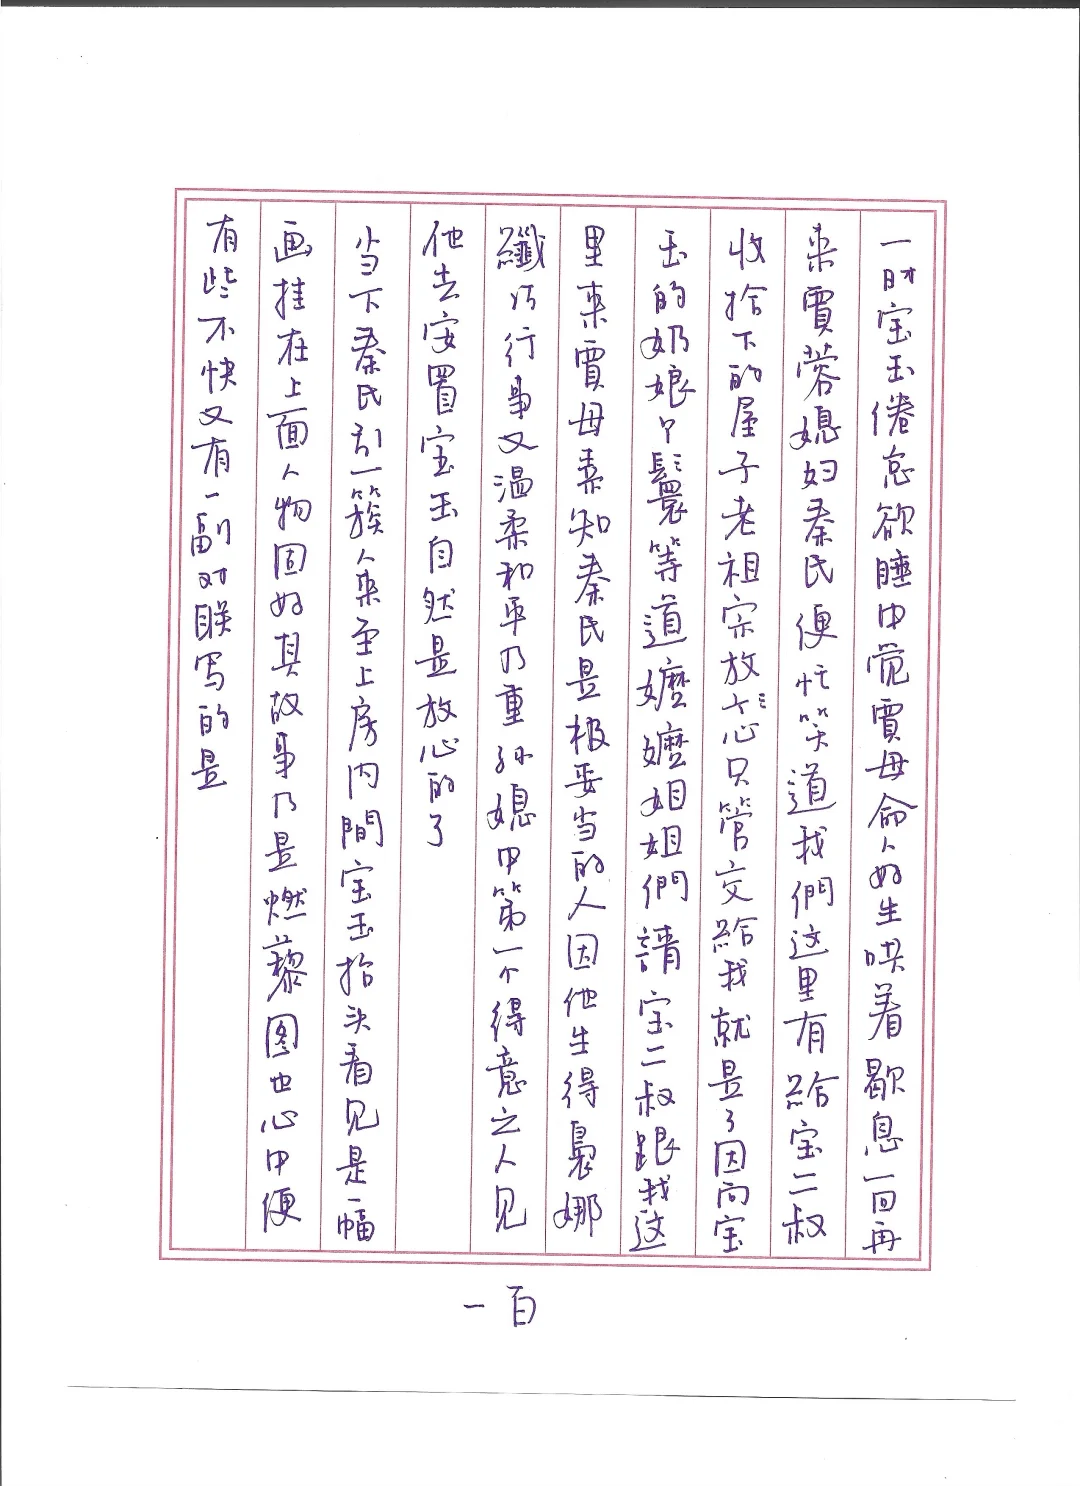 一时宝玉倦怠欲睡中觉賈母命人好生哄着歇息一回再
来賈蓉媳妇秦氏便忙笑道我們这里有給宝二叔
收拾下的屋子老祖宗放心只管交給我就是了因向宝
玉的奶娘丫鬟等道嬷嬷姐姐們請宝二叔跟我这
里来賈母素知秦氏是极妥当的人因他生得裊娜
纖巧行事又温柔和平乃重孙媳中第一个得意之人见
他去安置宝玉自然是放心的了
当下秦氏引一簇人来至上房内間宝玉抬头看见是一幅
画挂在上面人物固好其故事乃是燃藜图也心中便
有些不快又有一副对联写的是
一百